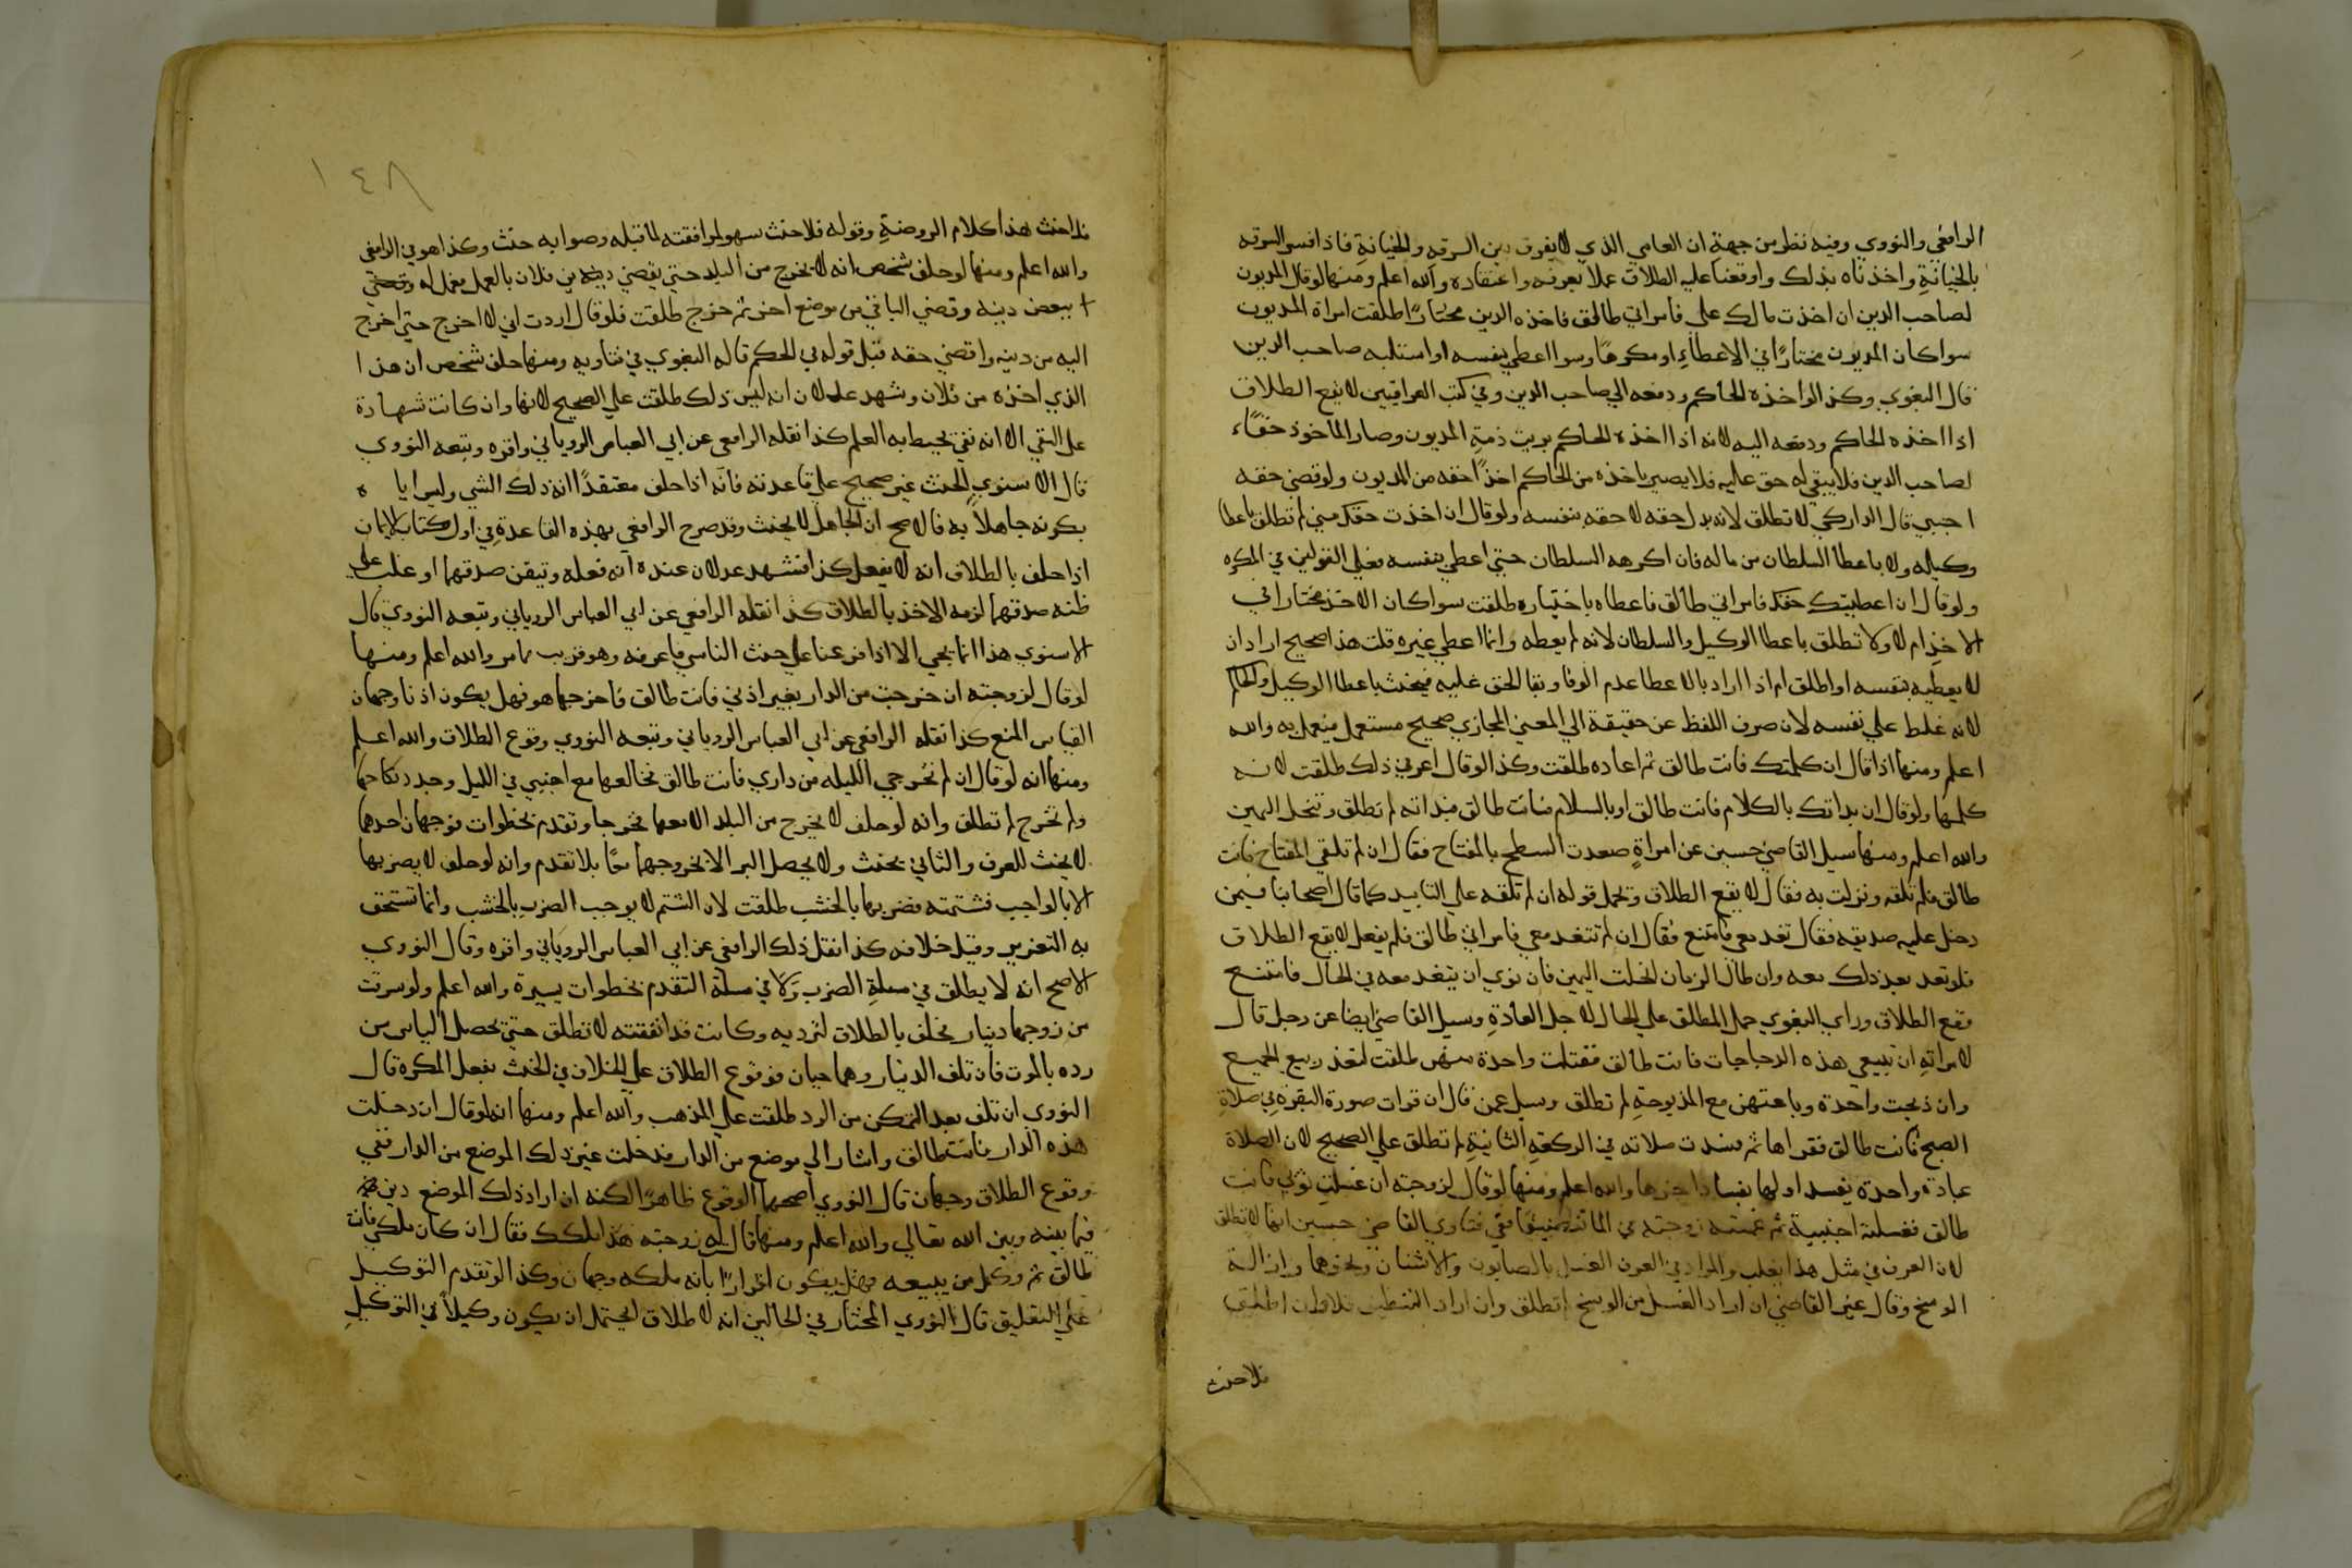 الرافعي والنووي وفيه نظر من جهة ان العامي الذي لا يفرق بين السرقه والخيانة فاذا فسر السرقه
بالخيانة واخذناه بذلك واوقعنا عليه الطلاق عملا بعرفه واعتقاده والله اعلم ومنها لو قال المديون
لصاحب الدين ان اخذت مالك علي فامراتي طالق فاخذه الدين مختارًا طلقت امراة المديون
سوا كان المديون مختارًا في الاعطاءِ او مكرهًا وسوا اعطي بنفسه او استلبه صاحب الدين
قال البغوي وكذا لو اخذه الحاكم ودفعه الي صاحب الدين وفي كتب العراقيين لا يقع الطلاق
اذا اخذه الحاكم ودفعه اليه لانه اذا اخذه الحاكم بريت ذمة المديون وصار الماخوذ حقًا
لصاحب الدين فلا يبقي له حق عليه فلا يصير باخذه من الحاكم اخذًا حقه من المديون ولو قضي حقه
اجنبي قال الداركي لا تطلق لانه بدل حقه لا حقه بنفسه ولو قال ان اخذت حقك مني لم تطلق باعطا
وكيله ولا باعطا السلطان من ماله فان اكرهه السلطان حتي اعطي بنفسه فعلي القولين في المكره
ولو قال ان اعطيتك حقك فامراتي طالق فاعطاه باختياره طلقت سوا كان الاخذ مختارا في
الاخذ ام لا ولا تطلق باعطا الوكيل والسلطان لانه لم يعطه وانما اعطي غيره قلت هذا صحيح ان اراد ان
لا يعطيه بنفسه او اطلق ام اذا اراد بالاعطا عدم الوفا وبقا الحق عليه فيحنث باعطا الوكيل والحاكم
لانه غلظ علي نفسه لان صرف اللفظ عن حقيقة الي المعني المجازي صحيح مستعمل فيعمل به والله
اعلم ومنها اذا قال ان كلمتك فانت طالق ثم اعاده طلقت وكذا لو قال اعرفي ذلك طلقت لانه
كلمها ولو قال ان بداتك بالكلام فانت طالق او بالسلام فانت طالق فبداته لم تطلق وتنحل اليمين
والله اعلم ومنها سيل القاضي حسين عن امراةٍ صعدت السطح بالمفتاح فقال ان لم تلقي المفتاح فانت
طالق فلم تلقه ونزلت به فقال لا يقع الطلاق وتحمل قوله ان لم تلقه علي التابيد كما قال اصحابنا فيمن
دخل عليه صديقه فقال تغد معي فامتنع فقال ان لم تتغد معي فامراتي طالق فلم يفعل لا يقع الطلاق
فلو تغد بعد ذلك معه وان طال الزمان انحلت اليمين فان نوي ان يتغد معه في الحال فامتنع
وقع الطلاق وراي البغوي حمل المطلق علي الحال لاجل العادةِ وسيل القاضي ايضا عن رجل قال
لامراتهِ ان تبيعي هذه الدجاجات فانت طالق فقتلت واحدة منهن طلقت لتعذر بيع الجميع
وان ذبحت واحدة وباعتهن مع المذبوحةِ لم تطلق وسيل عمن قال ان قرات صورة البقرة في صلاةِ
الصبح فانت طالق فقراها ثم فسدت صلاته في الركعةِ الثانيةِ لم تطلق علي الصحيح لان الصلاة
عبادة واحدة يفسد اولها بفساد اخرها والله اعلم ومنها لو قال لزوجته ان غسلتِ ثوبي فانت
طالق فغسلته اجنبية ثم غمسته زوجته في الما تنظيفًا ففي فتاوي القاضي حسين انها لا تطلق
لان العرف في مثل هذا يغلب والمراد في العرف الغسل بالصابون والاشنان ونحوهما وازالة
الوسخ وقال غير القاضي ان اراد الغسل من الوسخ لم تطلق وان اراد التنظيف فلا وان اطلق
فلا حنث
١٤٨
فلا حنث هذا كلام الروضةِ وقوله فلا حنث سهو لموافقته لما قبله وصوابه حنث وكذا هو في الرافعي
والله اعلم ومنها لو حلف شخص انه لا يخرج من البلد حتي يقضي دينه من فلان بالعمل فعمل له وقضي
ببعض دينه وقضي الباقي من موضع اخر ثم خرج طلقت فلو قال اردت اني لا اخرج حتي اخرج
اليه من دينه واقضي حقه قبل قوله في الحكم قاله البغوي في فتاويه ومنها حلف شخص ان هذا
الذي اخذه من فلان وشهد عدلان انه ليس ذلك طلقت علي الصحيح لانها وان كانت شهادة
علي النفي الا انه نفي يحيط به العلم كذا نقله الرافعي عن ابي العباس الروياني واقره وتبعه النووي
قال الاسنوي الحنث غير صحيح علي قاعدته فانه اذا حلف معتقدًا انه ذلك الشي وليس اياه
يكون جاهلاً به فالاصح ان الجاهل لا يحنث وقد صرح الرافعي بهذه القاعدة في اول كتاب الايمان
اذا حلف بالطلاق انه لا يفعل كذا فشهد عدلان عنده انه فعله وتيقن صدقهما او غلب علي
ظنه صدقهما لزمه الاخذ بالطلاق كذا نقله الرافعي عن ابي العباس الروياني وتبعه النووي قال
الاسنوي هذا انما يجي الا اذا فرعنا علي حنث الناسي فاعرفه وهو قريب مما مر والله اعلم ومنها
لو قال لزوجته ان خرجت من الدار بغير اذني فانت طالق فاخرجها هو فهل يكون اذنا وجهان
القياس المنع كذا نقله الرافعي عن ابي العباس الروياني وتبعه النووي وقوع الطلاق والله اعلم
ومنها انه لو قال ان لم تخرجي الليله من داري فانت طالق فخالعها مع اجنبي في الليل وجدد نكاحها
ولم تخرج لم تطلق وانه لو حلف لا يخرج من البلد الا معها فخرجا وتقدم بخطوات فوجهان احدهما
لا يحنث للعرف والثاني يحنث ولا يحصل البر الا بخروجهما معًا بلا تقدم وانه لو حلف لا يضربها
الا بالواجب فشتمته فضربها بالخشب طلقت لان الشتم لا يوجب الضرب بالخشب وانما تستحق
به التعزير وقيل خلافه كذا نقل ذلك الرافعي عن ابي العباس الروياني واقره وقال النووي
الاصح انه لا يطلق في مسلة الضرب ولا في مسلة التقدم بخطوات يسيرة والله اعلم ولو سرقت
من زوجها دينار فحلف بالطلاق لترديه وكانت قد انفقته لا تطلق حتي يحصل الياس من
رده بالموت فان تلف الدينار وهما حيان فوقوع الطلاق علي الخلاف في الحنث بفعل المكره قال
النووي ان تلف بعد التمكن من الرد طلقت علي المذهب والله اعلم ومنها انه لو قال ان دخلت
هذه الدار فانت طالق واشار الي موضع من الدار فدخلت غير ذلك الموضع من الدار ففي
وقوع الطلاق وجهان قال النووي اصحهما الوقوع ظاهرًا لكنه ان اراد ذلك الموضع دين
فيما بينه وبين الله تعالي والله اعلم ومنها قال له زوجته هذا ملكك فقال ان كان ملكي فانت
طالق ثم وكل من يبيعه فهل يكون اقرارًا بانه ملكه وجهان وكذا لو تقدم التوكيل
علي التعليق قال النووي المختار في الحالين انه لا طلاق لا يحتمل ان يكون وكيلاً في التوكيلِ